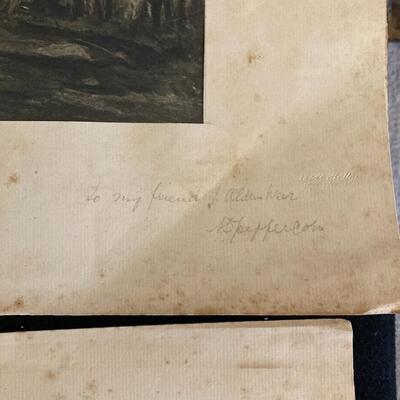 To my friend J. Alden Weir
A D Peppercorn